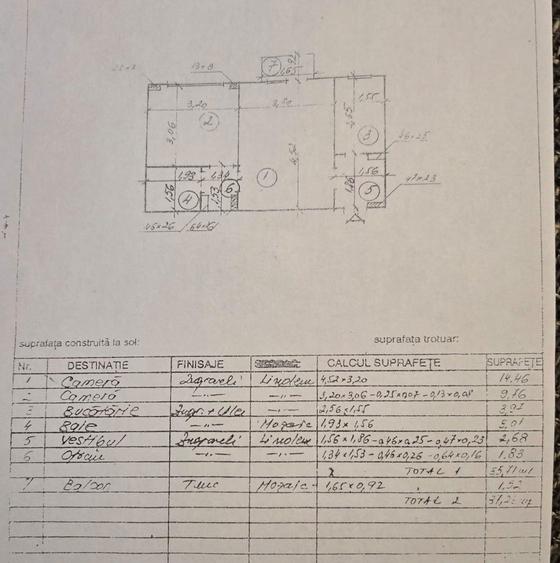 13×8
7
1,65
92
3,20
3,20
1,55
2,55
3,06
2
3
46×25
1,93
1,34
1
4,52
1,56
1,56
1,53
6
1,86
4
5
47×23
45×26 64×16
suprafața construită la sol: suprafața trotuar:
Nr. DESTINAȚIE FINISAJE CALCUL SUPRAFEȚE SUPRAFEȚE
1 Cameră Zugraveli Linoleu 4,52×3,20 14.46
2 Cameră —..— —..— 3,20×3,06-0,25×0,07-0,13×0,08 9,76
3 Bucătărie Zugr.+Ulei —..— 2,56×1,55 3,97
4 Baie —..— Mozaic 1,93×1,56 3,01
5 Vestibul Zugraveli Linoleu 1,56×1,86-0,46×0,25-0,47×0,23 2,68
6 Oficiu —..— —..— 1,34×1,53-0,45×0,26-0,64×0,16 1.83
TOTAL 1 35,71 m
7 Balcon Mozaic 1,65×0,92 1,52
TOTAL 2